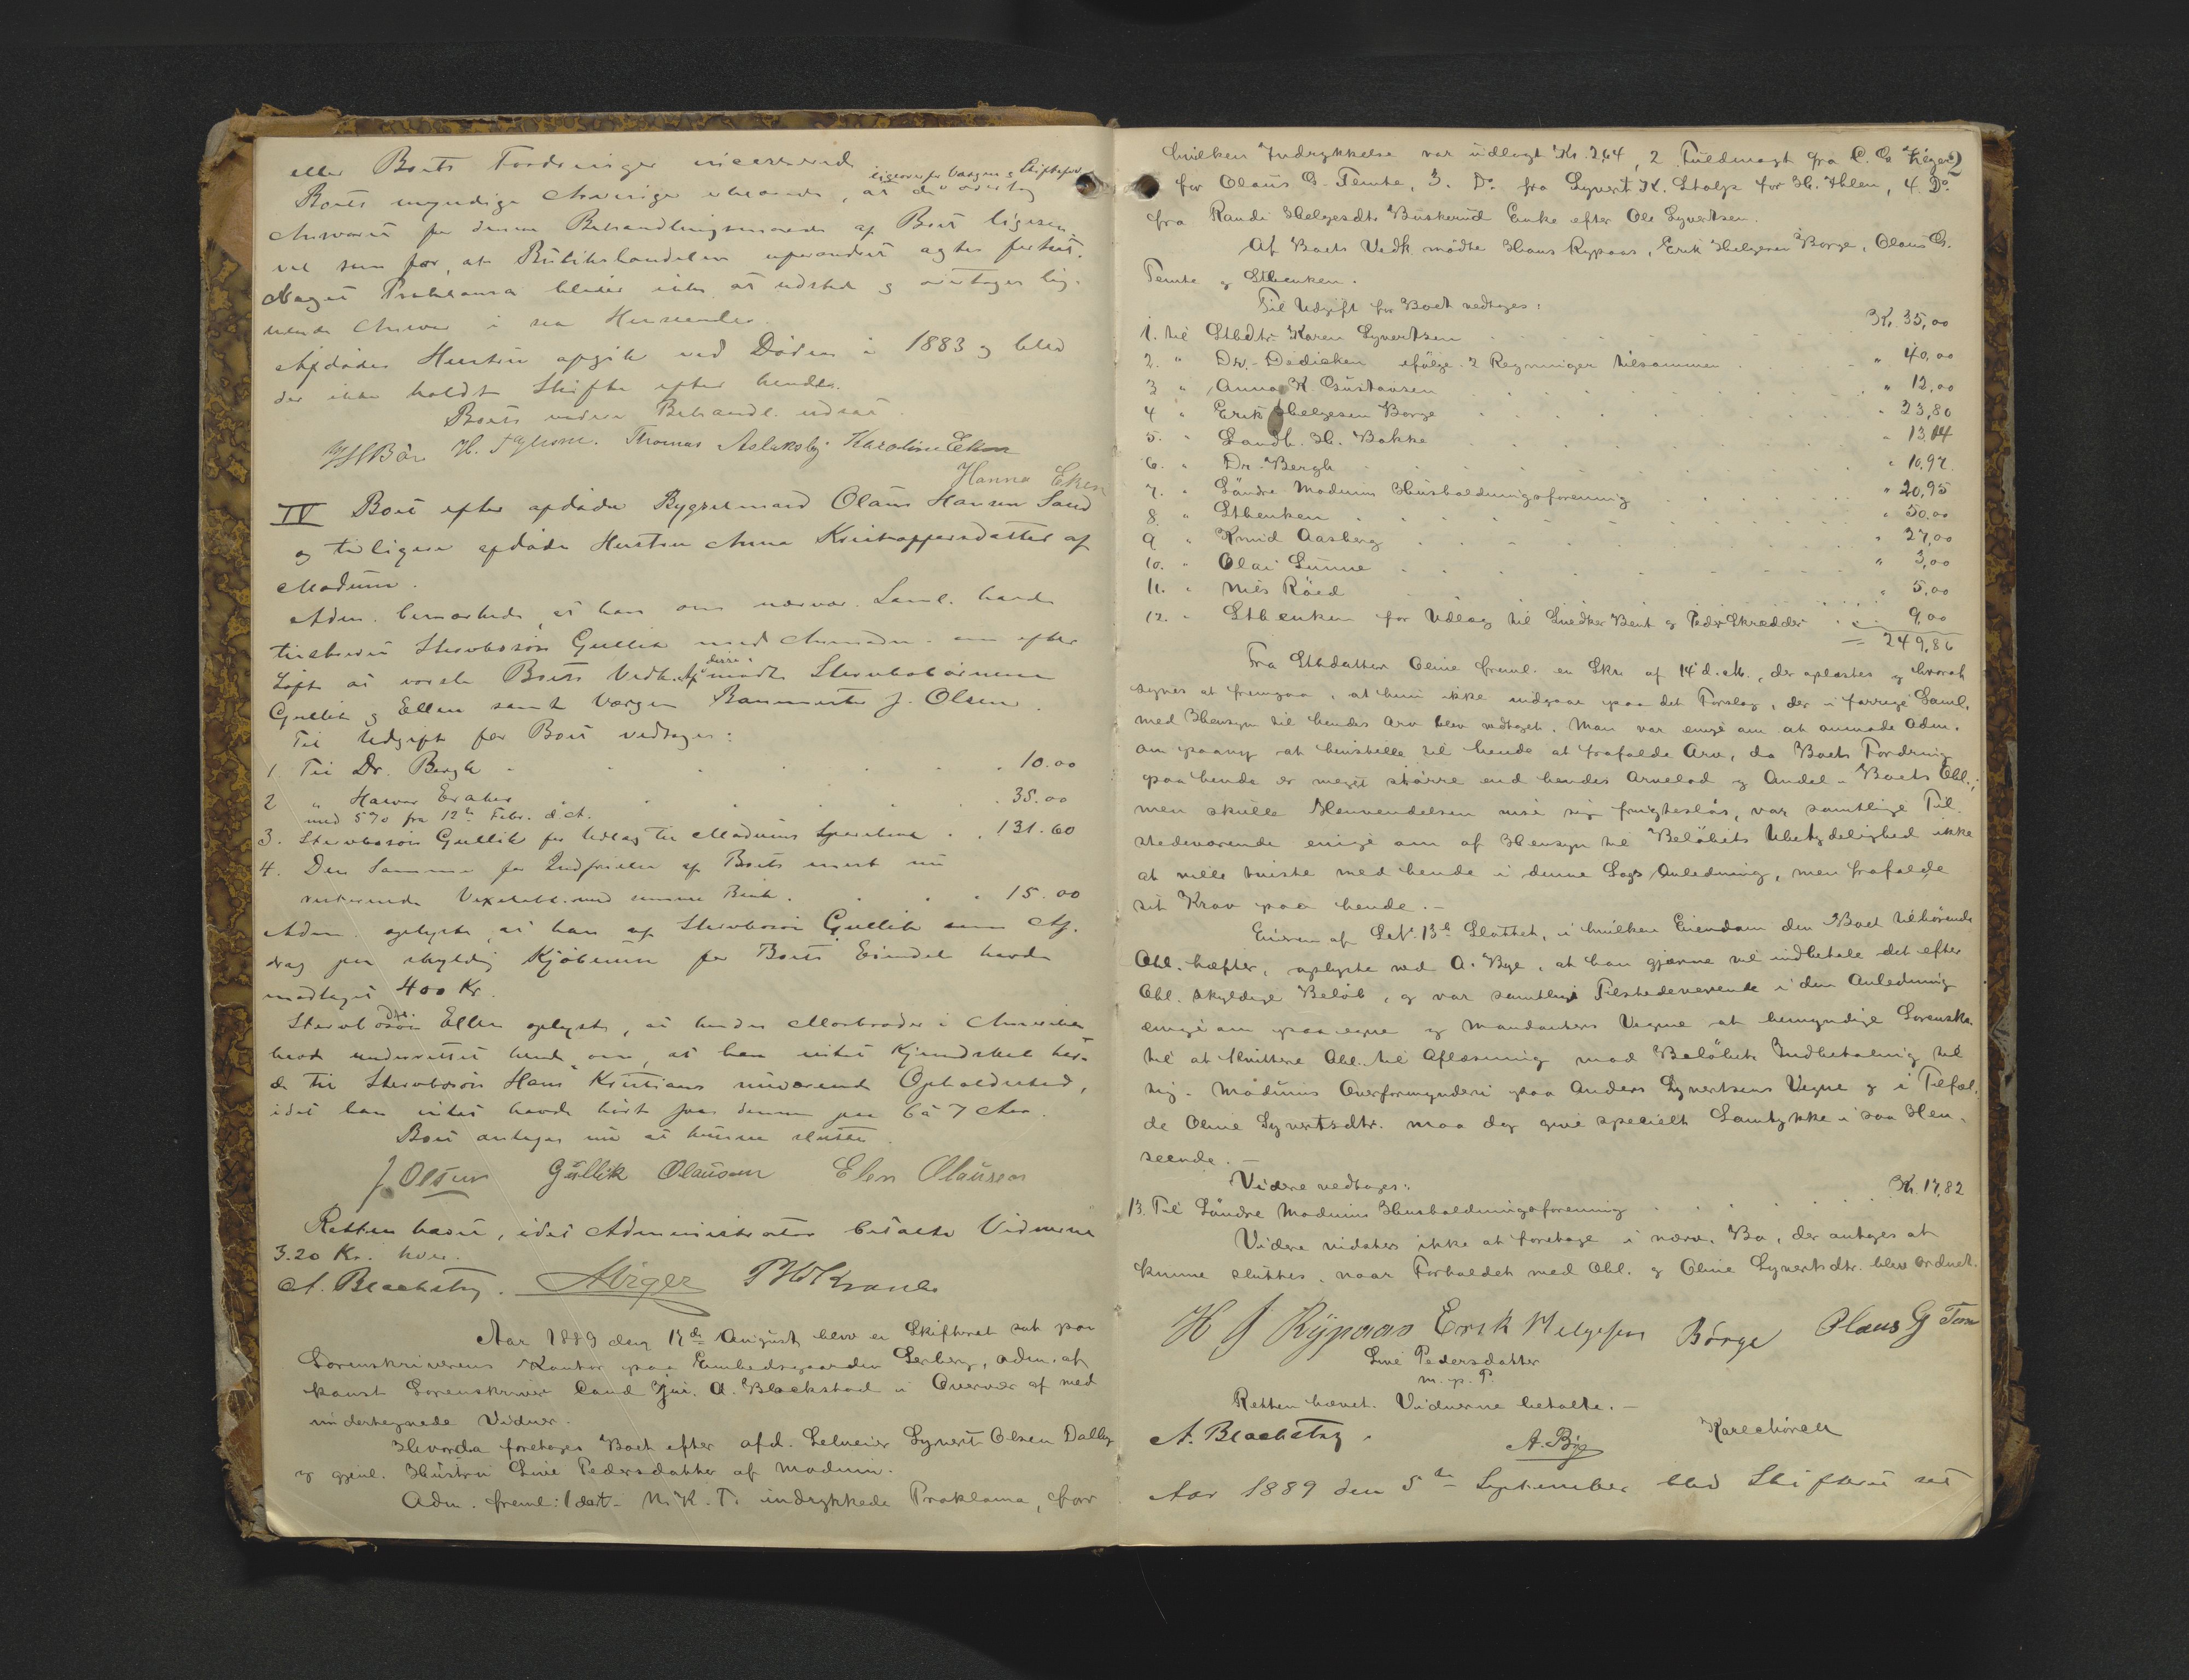 eller Boets Fordringer
ligeoverfor Værgen & Skifteforv.
Boets myndige Arvinger erklærede, at de overtog
Ansvaret for denne Behandlingsmaade af Boet ligesaa-
vel som for, at Butikshandelen uforandret agtes fortsat.
Noget Proklama bliver ikke at udstede og overtages lig-
nende Ansvar i saa Henseende.
Afdødes Hustru afgik ved Døden i 1883 og blev
der ikke holdt Skifte efter hende.
Boets videre Behandl. udsat
H. Thomas Aslaksby Karoline Eken
Hanna Eken
IV Boet efter afdøde Bygselmand Olaus Hansen Sand
og tidligere afdøde Hustru Anna Kristoffersdatter af
Modum.
Adm. bemærkede, at han om nærvær. Saml. havde
tilskrevet Stervbosøn Gullik med Anmodn. om efter
Løfte at varsle Boets Vedk. Af disse mødte Stervbobørnene
Gullik og Ellen samt Værgen Banmester J. Olsen.
Til Udgift for Boet vedtages:
1. Til Dr. Bergh . . . 10.00
2 " Halvor . . . 35.00
med 5% fra 12te Febr. d. A.
3. Stervbosøn Gullik for Udlæg til Modums Sparebank . . 131.60
4. Den Samme for Indfrielse af Boets mest nu
resterende Vexelobl. med samme Bank . . . 15.00
Adm. oplyste, at han af Stervbosøn Gullik som Af-
drag paa skyldig Kjøbesum for Boets Eiendel havde
modtaget 400 Kr.
Stervbodtr. Ellen oplyste, at hendes Morbroder i Amerika
havde underrettet hende om, at han intet Kjendskab hav-
de til Stervbosøn Hans Kristians nuværende Opholdssted,
idet han intet havde hørt fra denne paa 6 à 7 Aar.
Boet antages nu at kunne sluttes.
J. Olsen Gullik Olausen Elen Olausen
Retten hævet, idet Administrator betalte Vidnerne
3.20 Kr. hver.
A. Blackstad.
Aar 1889 den 17de August blev en Skifteret sat paa
Sorenskriverens Kontor paa Embedsgaarden Lerberg, adm. af
konst. Sorenskriver Cand. jur. A. Blackstad i Overvær af med
undertegnede Vidner.
Hvorda foretages Boet efter afd. Selveier Syvert Olsen Dalby
og gjenl. Hustru Live Pedersdatter af Modum.
Adm. freml: 1 det i N. K. T. indrykkede Proklama, for
2
hvilken Indrykkelse var udlagt Kr. 2,64, 2 Fuldmagt fra C. O.
for Olaus G. Temte, 3. Do. fra Syvert K. Stalge for H. Ihlen, 4. Do.
fra Randi Helgesdtr. Buskerud Enke efter Ole Syvertsen.
Af Boets Vedk. mødte Hans Rypaas, Erik Helgesen Borge, Olaus G.
Temte og Stbenken.
Til Udgift for Boet vedtages:
1. til Stbdtr. Karen Syvertsen . . . Kr. 35,00
2. " Dr. Dedichen ifølge 2 Regninger tilsammen . . . " 40,00
3 " Anna K. Gustavsen . . . " 12,00
4 " Erik Helgesen Borge . . . " 23,80
5. " Landh. H. Bakke . . . " 13,14
6. " Dr. Bergh . . . " 10,97
7. " Søndre Modums Husholdningsforening . . . " 20,95
8. " Stbenken . . . " 50,00
9 " Knud Aasberg . . . " 27,00
10. " Olai Lunne . . . " 3,00
11. " Nils Røed . . . " 5,00
12. " Stbenken for Udlæg til Snedker Bent og Peder Skrædder . . . 9,00
= 249,86
Fra Stbdatter Oline freml. en Skr. af 14 d. M., der oplæstes og hvoraf
synes at fremgaa, at hun ikke indgaar paa det Forslag, der i forrige Saml.
med Hensyn til hendes Arv blev vedtaget. Man var enige om at anmode Adm.
om paany at henstille til hende at frafalde Arv, da Boets Fordring
paa hende er meget større end hendes Arvelod og Andel i Boets Obl.;
men skulle Henvendelsen vise sig frugtesløs, var samtlige Til-
stedeværende enige om af Hensyn til Beløbets Ubetydelighed ikke
at ville tviste med hende i denne Sags Anledning, men frafalde
sit Krav paa hende. –
Eieren af L.N. 13b Slottet, i hvilken Eiendom den Boet tilhørende
Obl. hæfter, oplyste ved A. Bye, at han gjerne vil indbetale det efter
Obl. skyldige Beløb, og var samtlige Tilstedeværende i den Anledning
enige om paa egne og Mandanters Vegne at bemyndige Sorenskr.
til at kvittere Obl. til Aflæsning mod Beløbets Indbetaling til
sig. Modums Overformynderi paa Anders Syvertsens Vegne og i Tilfæl-
de Oline Syvertsdtr. maa dog give specielt Samtykke i saa Hen-
seende. –
Videre vedtages:
13. Til Søndre Modums Husholdningsforening . . . Kr. 17,82
Videre vidstes ikke at foretage i nærv. Bo, der antages at
kunne sluttes, naar Forholdet med Obl. og Oline Syvertsdtr. blev ordnet.
H J Rypaas Erik Helgesen Borge Olaus G Tem
Live Pedersdatter
m. p. P.
Retten hævet. Vidnerne betalte. –
A. Blackstad. A. Bye
Aar 1889 den 5te September blev Skifteret sat